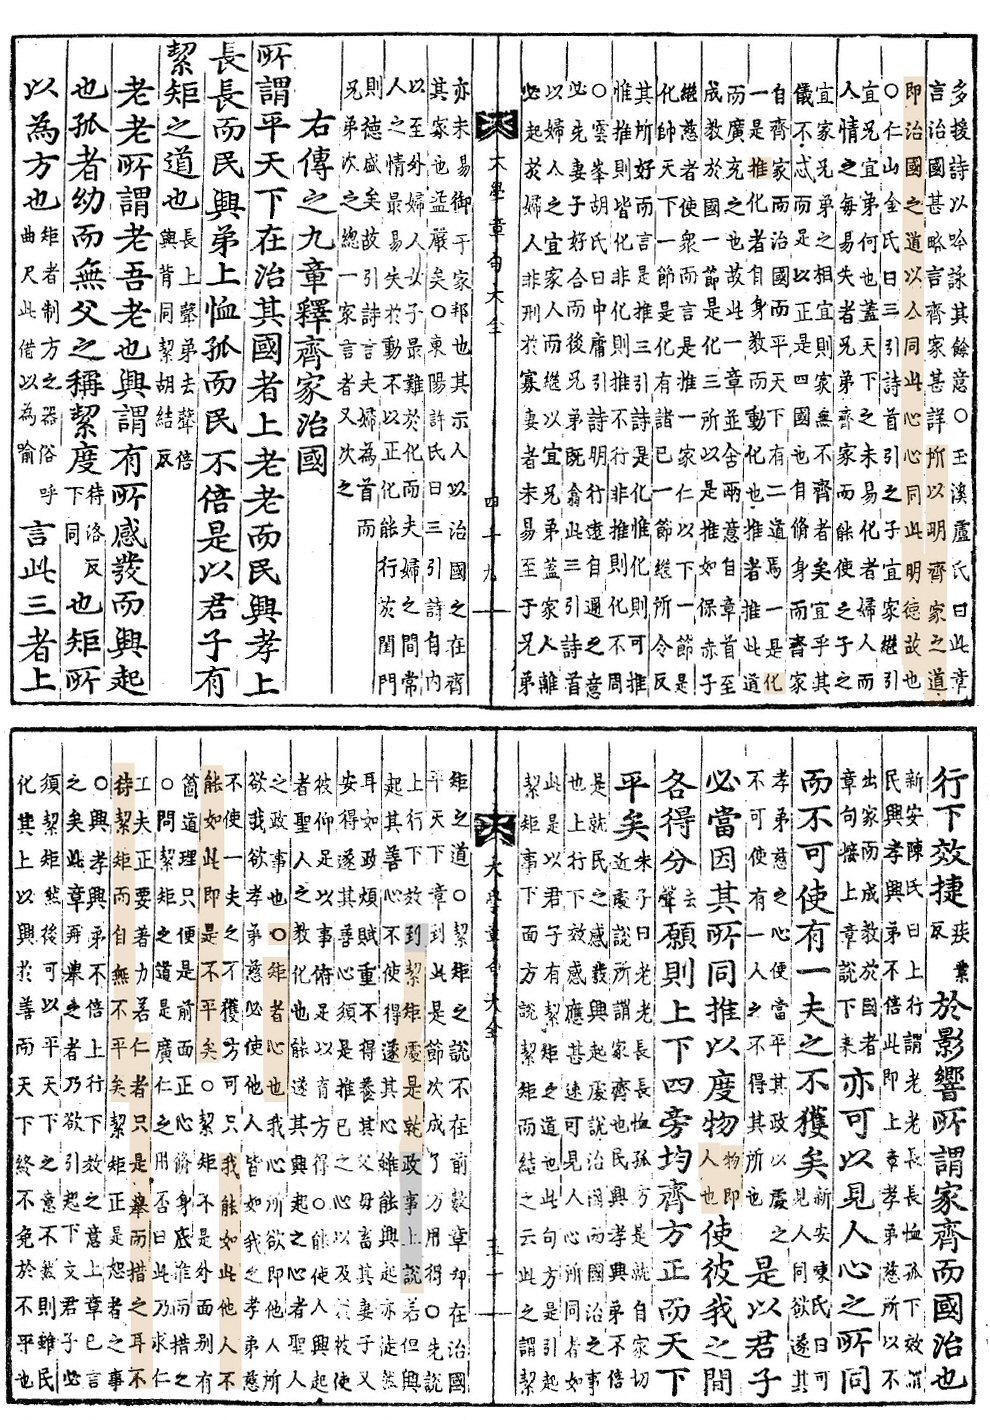 多援詩以吟詠其餘意○玉溪盧氏曰此章
言治國甚略言齊家甚詳所以明齊家之道
即治國之道以人同此心心同此明德故也
○仁山金氏曰三引詩首引之子宜家繼引
宜兄宜弟何也蓋天下之未易化者婦人而
人情之每易失者兄弟齊家而能使之子之
宜家兄弟之相宜則家無不齊者矣宜乎其
儀不忒而足以正是四國也自脩身而齊家
自齊家而治國而平天下有二道焉一是化
一是推化者自身教而動化也推者推此道
而廣充之也故此一章並含兩意自章首至
成教於國一節是化三所以是推如保赤子
繼慈者使衆而言是推一家仁以下一節是
化帥天下一節是化有諸己一節繼所令反
其所好而言是推三引詩是化惟化則可推
惟推則皆化非化則推不行非推則化不周
○雲峯胡氏曰中庸引詩明行遠自邇之意
必先妻子好合而後兄弟既翕此三引詩首
以婦人之宜家人而繼以宜兄弟蓋家人離
必起於婦人非刑於寡妻者未易至于兄弟
大學章句大全 四十九
亦未易御于家邦也其示人以治國之在齊
其家也益嚴矣○東陽許氏曰三引詩自內
以至外婦人女子最難於化而夫婦之間常
人之情最易失於動不以正化能行於閨門
則德盛矣故引詩言夫婦為首而
兄弟次之總一家言者又次之
右傳之九章釋齊家治國
所謂平天下在治其國者上老老而民興孝上
長長而民興弟上恤孤而民不倍是以君子有
絜矩之道也長上聲弟去聲倍與背同絜胡結反
老老所謂老吾老也興謂有所感發而興起
也孤者幼而無父之稱絜度待洛反下同也矩所
以為方也矩者制方之器俗呼曲尺此借以為喻言此三者上
行下效捷疾業反於影響所謂家齊而國治也
新安陳氏曰上行謂老老長長恤孤下效謂
民興孝興弟不倍此即上章孝弟慈所以不
出家而成教於國者
章句接上章說下來亦可以見人心之所同
而不可使有一夫之不獲矣新安陳氏曰可見人同欲遂其
孝弟慈之心便當平其政以處之
不可使有一人之不得其所也是以君子
必當因其所同推以度物物即人也使彼我之間
各得分去聲願則上下四旁均齊方正而天下
平矣朱子曰老老長長恤孤方是就自家切
近處說所謂家齊也民興孝興弟不倍
是就民之感發興起處說治國而國治之事
也上行下效感應甚速可見人心所同者如
此是以君子有絜矩之道也此句方是引起
絜矩事下面方說絜矩而結之云此之謂絜
大學章句大全 五十
矩之道○絜矩之說不在前數章却在治國
平天下章到此是節次成了方用得○先說
上行下效到絜矩處是就政事上說若但興
起其善心不使得遂其心雖能興起亦徒然
耳如政煩賦重不得養其父母畜其妻子又
安得遂其善心須是推己之心以及於彼使
彼仰足以事俯足以育方得○能使人興起
者聖人之教化也能遂其興起之心者聖人
之政事也○矩者心也我心所欲即他人所
欲我欲孝弟慈必使他人皆如我之孝弟慈
不使一夫之不獲方可只我能如此他人不
能如此即是不平矣○絜矩不是外面別有
箇道理只便是前面正心脩身底推而措之
○問絜矩之道是廣仁之用否曰此乃求仁
工夫正要著力若仁者只是舉而措之耳不
待絜矩而自無不平矣絜矩正是恕者之事
○興孝興弟不倍上行下效之意上章已言
之矣此章再舉之者乃欲引起下文君子必
須絜矩然後可以平天下之意不然則雖民
化其上以興於善而天下終不免於不平也